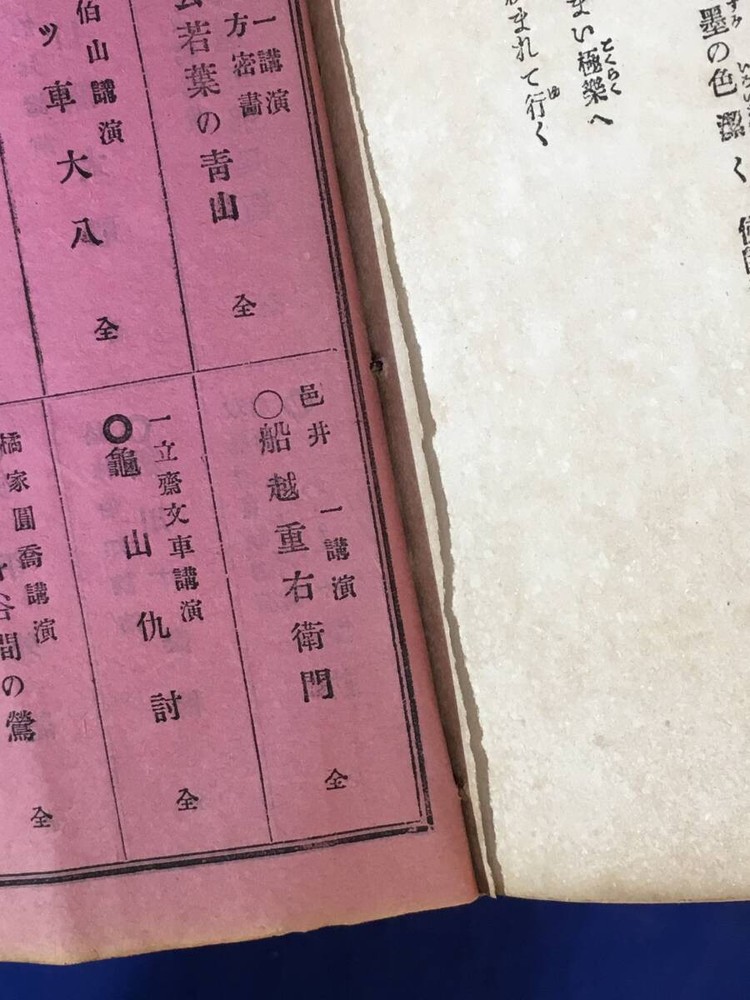 墨の色潔く
まい極樂へ
まれて行く
一講演
方密畵
若葉の青山 全
伯山講演
ツ車大八 全
邑井 一講演
○船越重右衛門 全
一立齋文車講演
◎龜山仇討 全
橘家圓喬講演
谷間の鶯 全